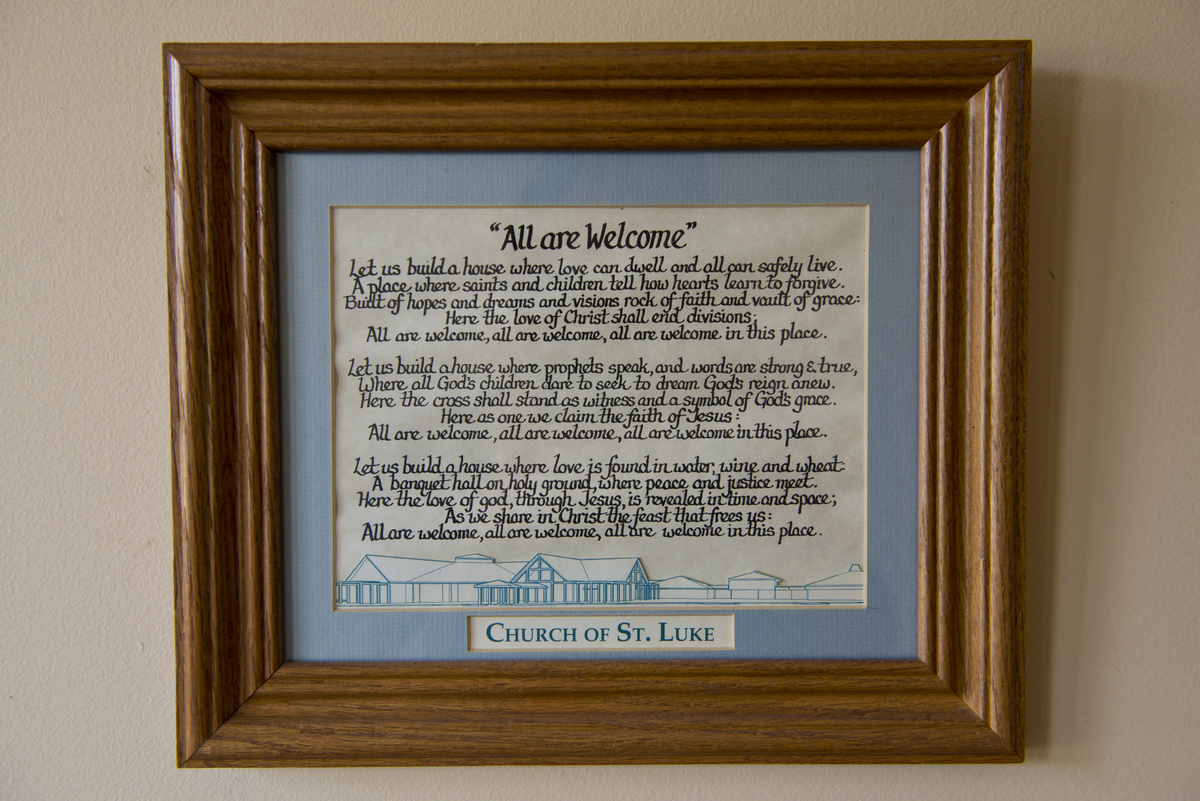 “All are Welcome”
Let us build a house where love can dwell and all can safely live.
A place where saints and children tell how hearts learn to forgive.
Built of hopes and dreams and visions rock of faith and vault of grace:
Here the love of Christ shall end divisions;
All are welcome, all are welcome, all are welcome in this place.
Let us build a house where prophets speak, and words are strong & true,
Where all God's children dare to seek to dream God's reign anew.
Here the cross shall stand as witness and a symbol of God's grace.
Here as one we claim the faith of Jesus:
All are welcome, all are welcome, all are welcome in this place.
Let us build a house where love is found in water, wine and wheat:
A banquet hall on holy ground, where peace and justice meet.
Here the love of god, through Jesus, is revealed in time and space;
As we share in Christ the feast that frees us:
All are welcome, all are welcome, all are welcome in this place.
CHURCH OF ST. LUKE